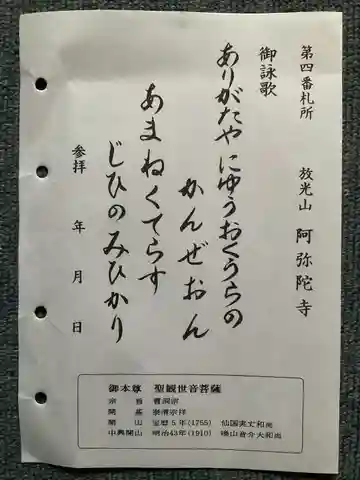 第四番札所　放光山　阿弥陀寺
御詠歌
ありがたやにゆうおくうらの
かんぜおん
あまねくてらす
じひのみひかり
参拝　年　月　日
御本尊　聖観世音菩薩
宗　旨　曹洞宗
開　基　宗祥
開　山　宝暦5年(1755)　仙国寛丈和尚
中興開山　明治43年(1910)　音介大和尚